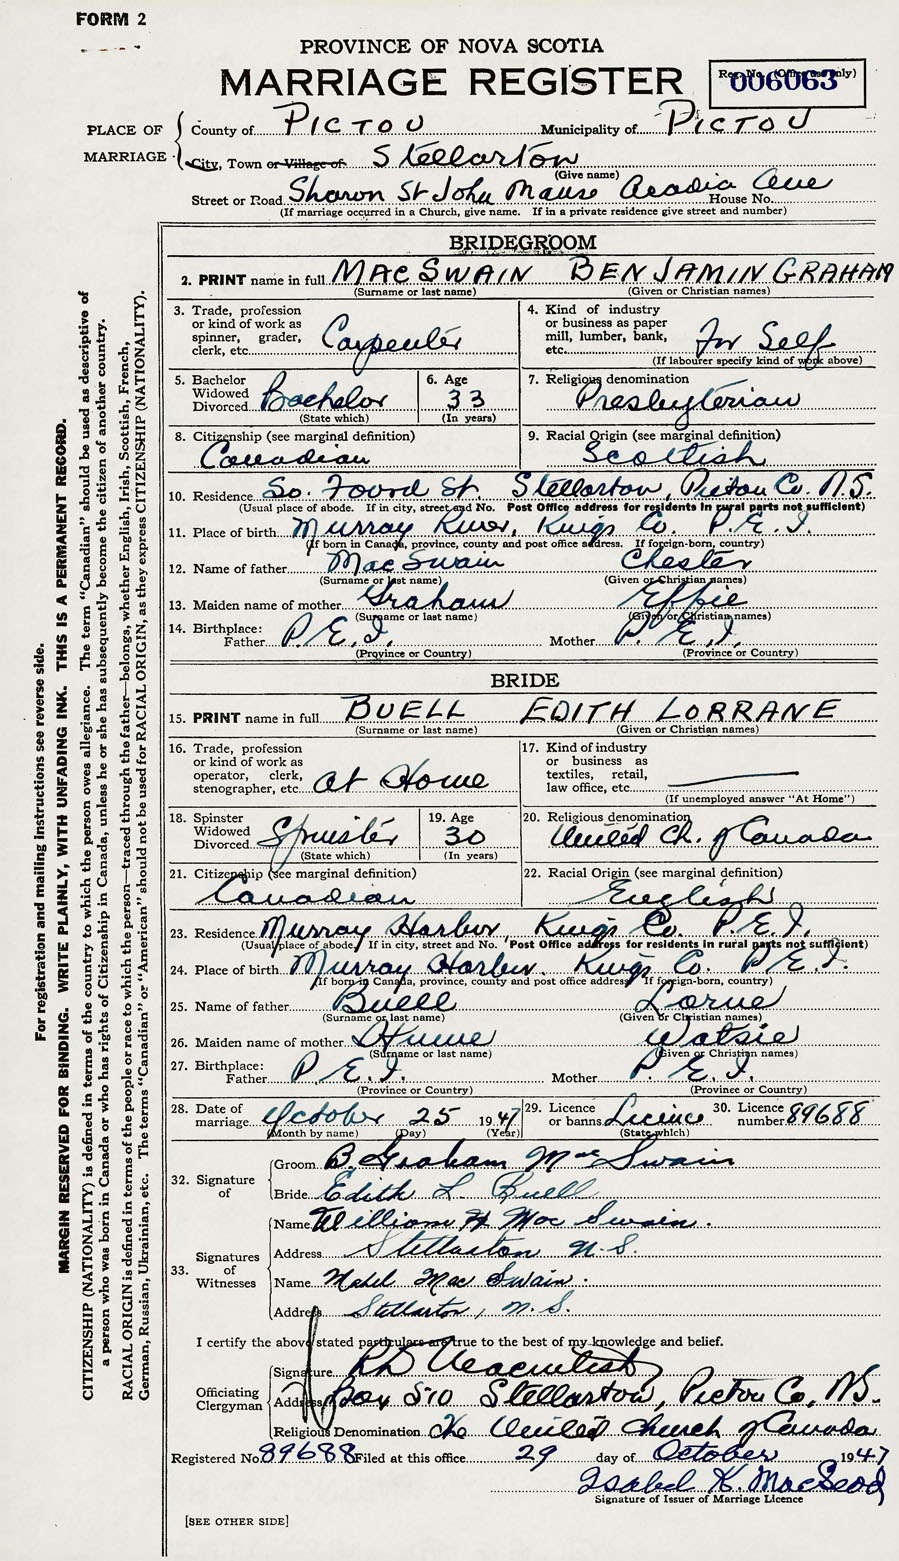 FORM 2
PROVINCE OF NOVA SCOTIA
MARRIAGE REGISTER
Reg. No. (Office use only)
006063
PLACE OF MARRIAGE
County of PICTOU Municipality of PICTOU
City, Town or Village of Stellarton
(Give name)
Street or Road Sharon St John Manse Acadia Ave House No.
(If marriage occurred in a Church, give name. If in a private residence give street and number)
BRIDEGROOM
2. PRINT name in full MACSWAIN BENJAMIN GRAHAM
(Surname or last name) (Given or Christian names)
3. Trade, profession or kind of work as spinner, grader, clerk, etc. Carpenter
4. Kind of industry or business as paper mill, lumber, bank, etc. For Self
(If labourer specify kind of work above)
5. Bachelor Widowed Divorced Bachelor
(State which)
6. Age 33
(In years)
7. Religious denomination Presbyterian
8. Citizenship (see marginal definition) Canadian
9. Racial Origin (see marginal definition) Scottish
10. Residence So. Foord St. Stellarton, Pictou Co. N.S.
(Usual place of abode. If in city, street and No. Post Office address for residents in rural parts not sufficient)
11. Place of birth Murray River, Kings Co. P.E.I.
(If born in Canada, province, county and post office address. If foreign-born, country)
12. Name of father MacSwain Chester
(Surname or last name) (Given or Christian names)
13. Maiden name of mother Graham Effie
(Surname or last name) (Given or Christian names)
14. Birthplace: Father P.E.I. Mother P.E.I.
(Province or Country) (Province or Country)
BRIDE
15. PRINT name in full BUELL EDITH LORRANE
(Surname or last name) (Given or Christian names)
16. Trade, profession or kind of work as operator, clerk, stenographer, etc. at Home
17. Kind of industry or business as textiles, retail, law office, etc.
(If unemployed answer "At Home")
18. Spinster Widowed Divorced Spinster
(State which)
19. Age 30
(In years)
20. Religious denomination United Ch. of Canada
21. Citizenship (see marginal definition) Canadian
22. Racial Origin (see marginal definition) English
23. Residence Murray Harbor, Kings Co. P.E.I.
(Usual place of abode. If in city, street and No. Post Office address for residents in rural parts not sufficient)
24. Place of birth Murray Harbor, Kings Co. P.E.I.
(If born in Canada, province, county and post office address. If foreign-born, country)
25. Name of father Buell Lorne
(Surname or last name) (Given or Christian names)
26. Maiden name of mother Hume Watsie
(Surname or last name) (Given or Christian names)
27. Birthplace: Father P.E.I. Mother P.E.I.
(Province or Country) (Province or Country)
28. Date of marriage October 25 1947
(Month by name) (Day) (Year)
29. Licence or banns Licence
(State which)
30. Licence number 89688
32. Signature of
Groom B. Graham MacSwain
Bride Edith L. Buell
33. Signatures of Witnesses
Name William H MacSwain.
Address Stellarton N.S.
Name Mabel MacSwain.
Address Stellarton, N.S.
I certify the above stated particulars are true to the best of my knowledge and belief.
Officiating Clergyman
Signature Macintosh
Address Box 510 Stellarton, Pictou Co, N.S.
Religious Denomination The United Church of Canada
Registered No. 89688 Filed at this office 29 day of October 1947
Isabel K. MacLeod
Signature of Issuer of Marriage Licence
[SEE OTHER SIDE]
For registration and mailing instructions see reverse side.
MARGIN RESERVED FOR BINDING. WRITE PLAINLY, WITH UNFADING INK. THIS IS A PERMANENT RECORD.
CITIZENSHIP (NATIONALITY) is defined in terms of the country to which the person owes allegiance. The term "Canadian" should be used as descriptive of
a person who was born in Canada or who has rights of Citizenship in Canada, unless he or she has subsequently become the citizen of another country.
RACIAL ORIGIN is defined in terms of the people or race to which the person—traced through the father—belongs, whether English, Irish, Scottish, French,
German, Russian, Ukrainian, etc. The terms "Canadian" or "American" should not be used for RACIAL ORIGIN, as they express CITIZENSHIP (NATIONALITY).